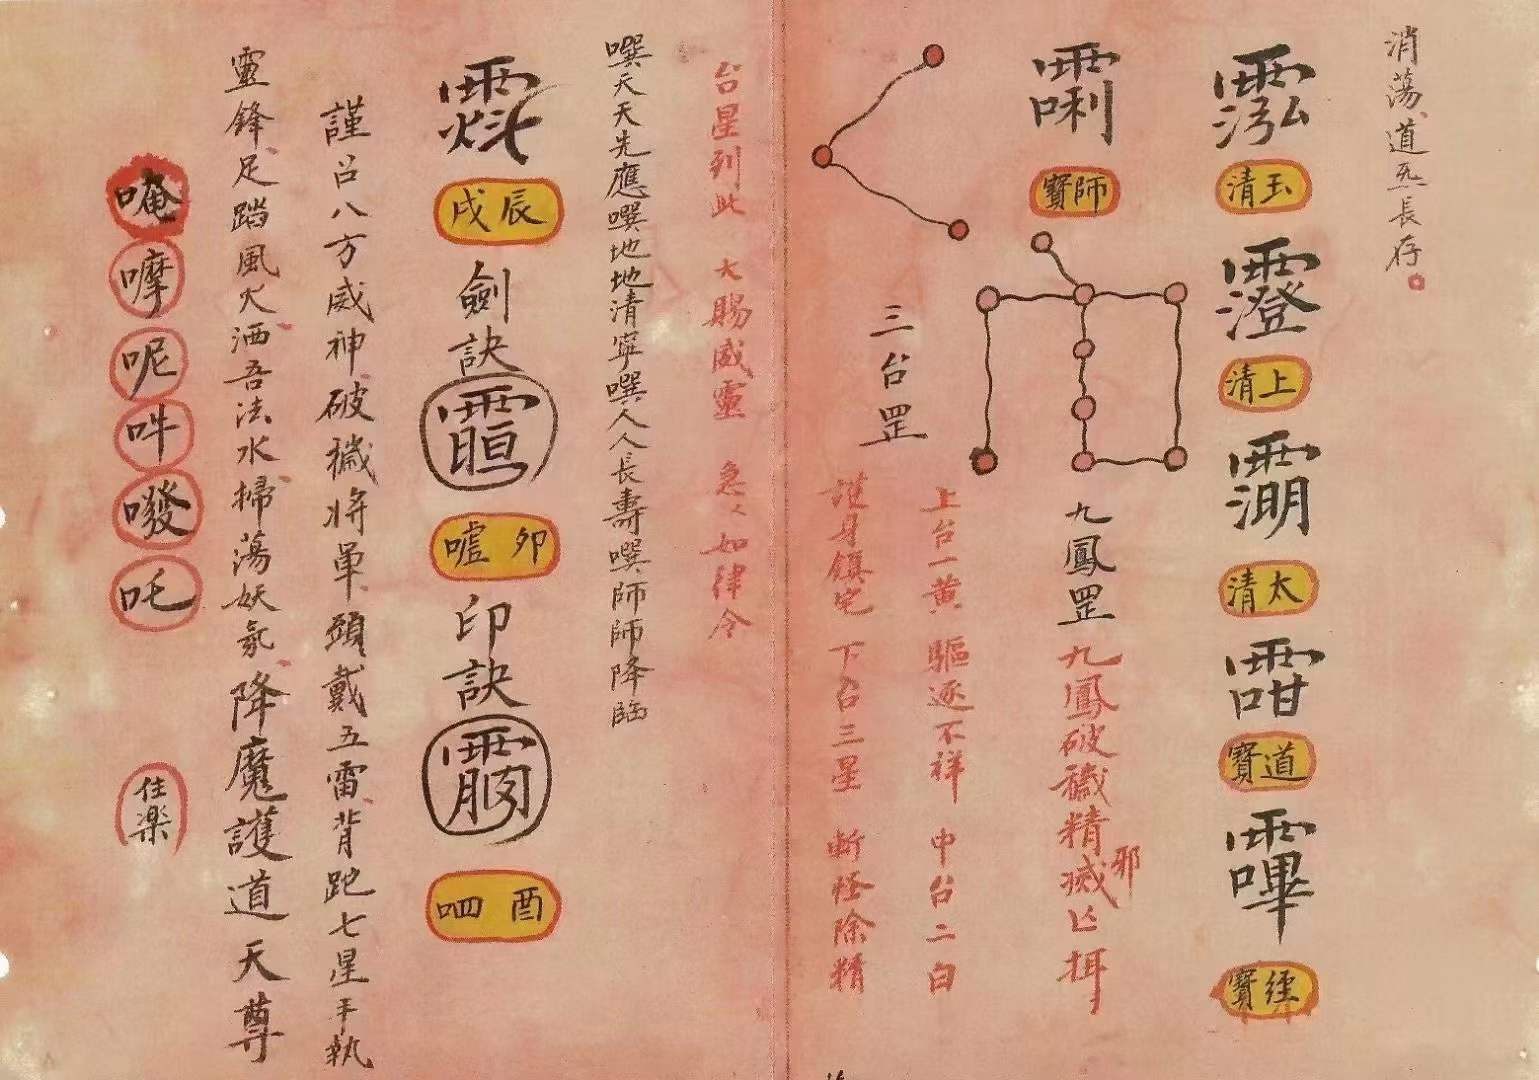 消荡道炁長存
清玉
清上
清太
寶道
寶經
唎
寶師
九鳳罡
九鳳破穢精滅邪
三台罡
上台一黄 驅逐不祥 中台二白
護身鎮宅 下台三星 斬怪除精
台星到此 大賜威靈 急々如律令
噀天天先應噀地地清寧噀人人長壽噀師師降臨
戌辰
劍訣
嘘卯
印訣
呬酉
謹召八方威神破穢将軍頭戴五雷背跎七星手執
靈鋒足踏風火洒吾法水掃荡妖氛降魔護道天尊
唵
嚤
呢
吽
㗶
吒
住楽